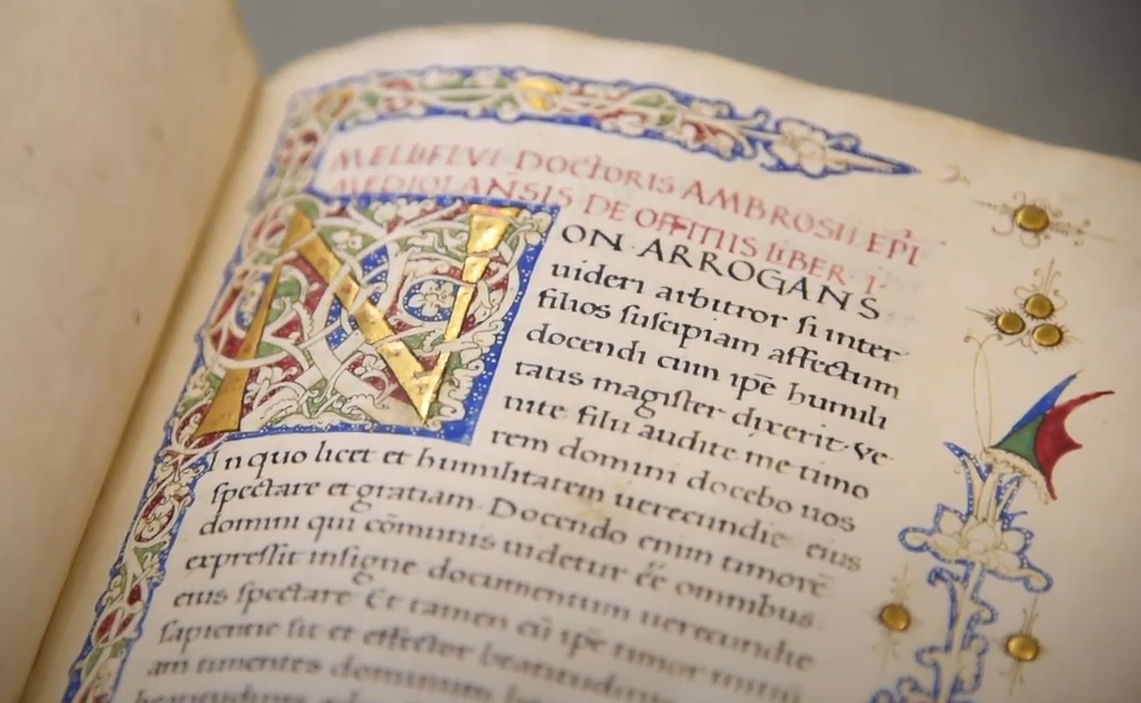 MELLIFLVI DOCTORIS AMBROSII EPI
MEDIOLANSIS DE OFFITIIS LIBER I
NON ARROGANS
uideri arbitror si inter
filios suscipiam affectum
docendi cum ipē humili
tatis magister dixerit. Ve
nite filii audite me timo
rem domini docebo uos
In quo licet et humilitatem uerecundie eius
spectare et gratiam. Docendo enim timorē
domini qui cōmunis uidetur ēē omnibus
expressit insigne documentum uerecundie
eius spectare Et tamen cū ipē timor initiū
sapientie sit et effector beatitudinis
am timentes dominum